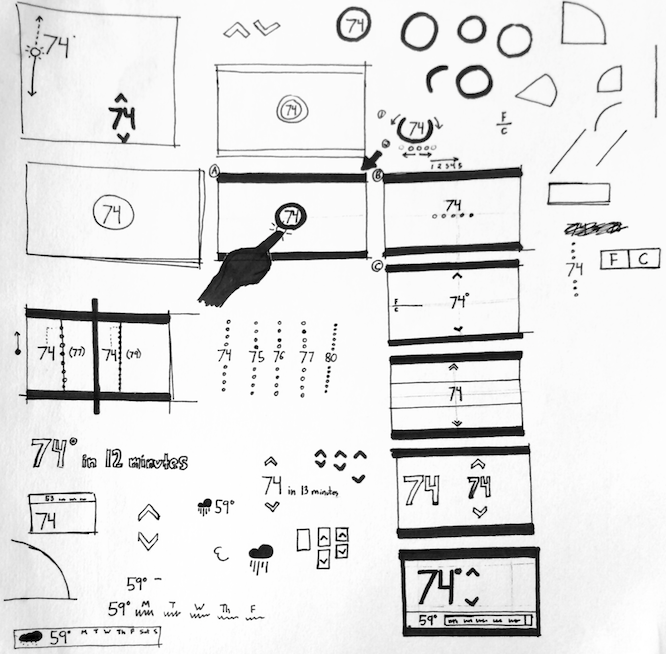 74°
74
74
74
74
①
74
②
F
C
1 2 3 4 5
Ⓐ
74
Ⓑ
74
74
Ⓒ
F
C
74°
74
F C
74 (77)
74 (79)
74 75 76 77 80
74
74° in 12 minutes
74 in 13 minutes
74 74
53
74
59°
59°
59° M T W Th F
59° M T W Th F Sat S
74°
59°